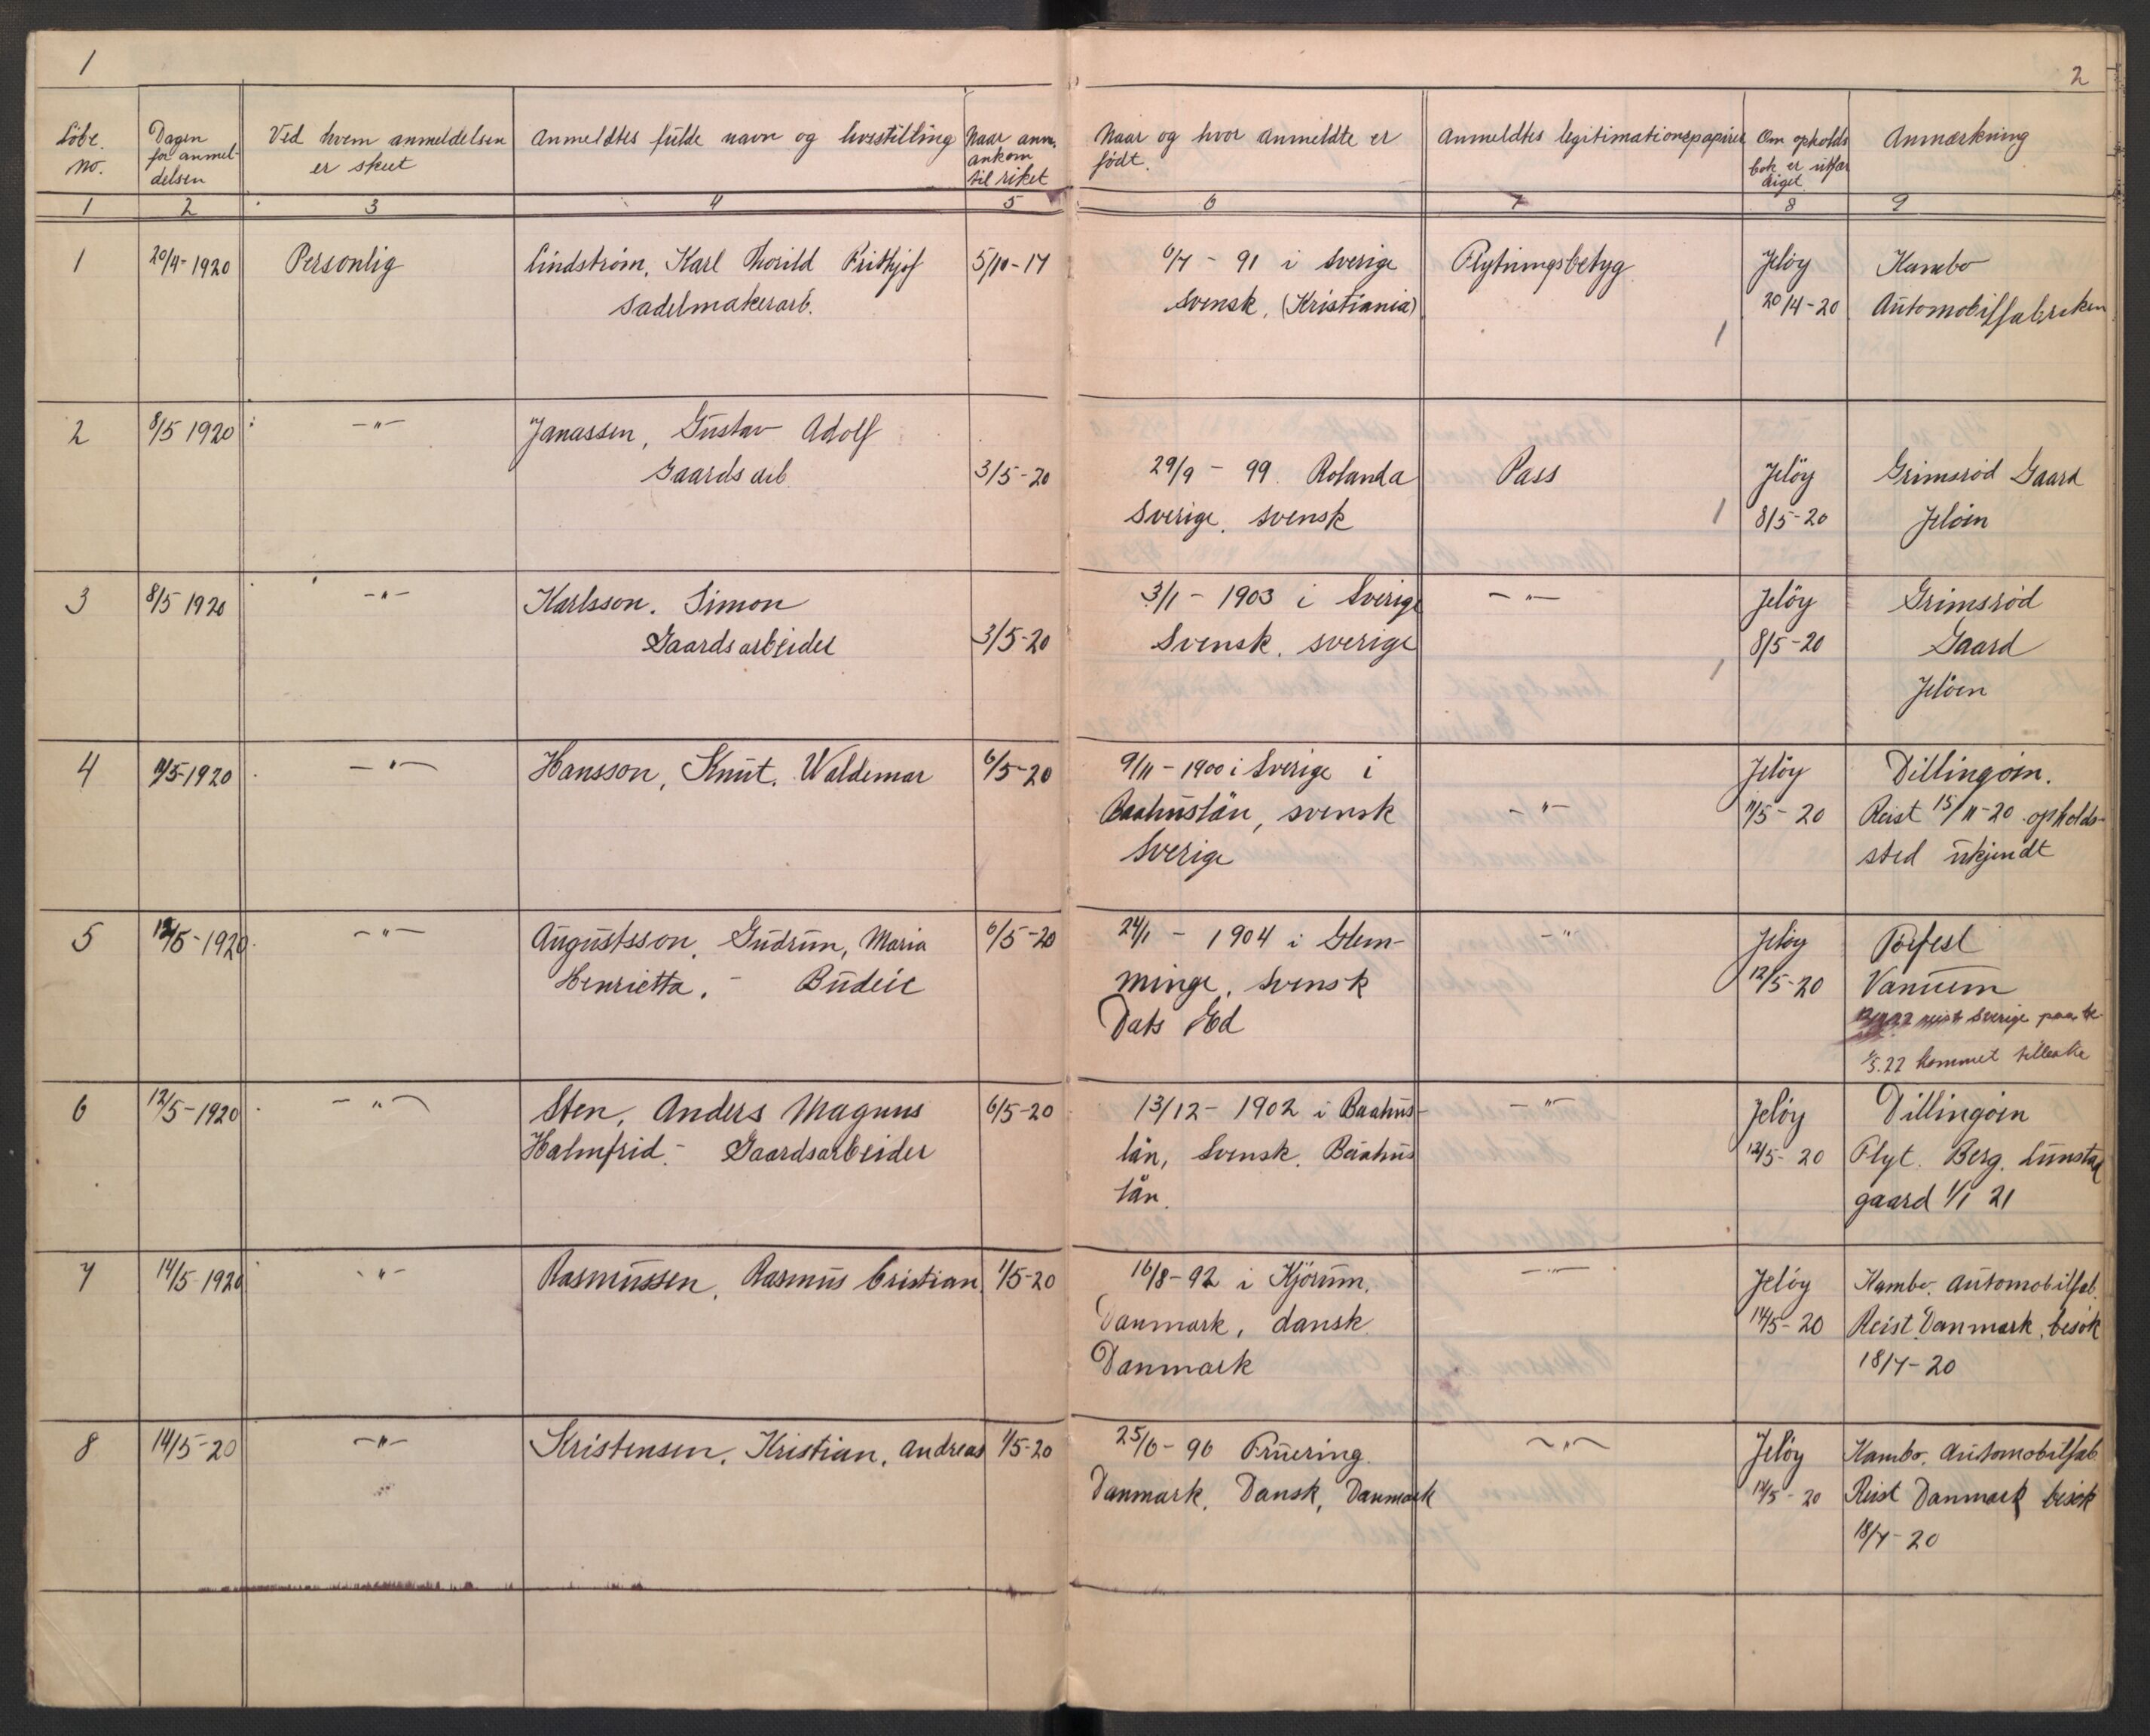 1
2
Löbe. no.
Dagen for anmel- delsen
Ved hvem anmeldelsen er skeet
Anmeldtes fulde navn og livsstilling
Naar anm. ankom til riket
Naar og hvor anmeldte er födt.
Anmeldtes legitimationspapirer
Om opholds bok er utfær diget
Anmærkning
1 2 3 4 5 6 7 8 9
1 20/4-1920 Personlig Lindström, Karl Thorild Frithjof 5/10-17 6/7 - 91 i Sverige Flytningsbetyg Jelöy Kambo
Sadelmakerarb. Svensk, (Kristiania) 20/4-20 Automobilfabreken
1
2 8/5 1920 -"- Janassen, Gustav Adolf
Gaards arb. 3/5-20 29/9 - 99. Rolanda Pass Jelöy Grimsröd Gaard
Sverige. svensk 1 8/5-20 Jelöen
3 8/5 1920 -"- Karlsson. Simon 3/1 - 1903 i Sverige -"- Jelöy Grimsröd
Gaardsarbeider 3/5-20 Svensk. sverige 8/5-20 Gaard
1 Jelöen
4 11/5-1920 -"- Hansson, Knut. Waldemar 6/5-20 9/11-1900 i Sverige i Jelöy Dillingöen.
Baahuslän, svensk -"- 11/5-20 Reist 15/11-20 opholds-
Sverige sted ukjendt
5 12/5-1920. -"- Augustsson, Gudrun, Maria 6/5-20 24/1 - 1904 i Glem- -"- Jelöy
Henrietta. - Budeie minge, svensk 12/5-20 Vanuem
Dals Ed reist Sverige
1/5.22 kommet tilbake
6 12/5-1920 -"- Sten, Anders Magnus 6/5-20 13/12-1902 i Baahus- -"- Jelöy Dillingöen
Halmfrid.- Gaardsarbeider län, Svensk. Baahus 12/5-20 Flyt. Berg. Lunstad
län. gaard 1/1 21
7 14/5-1920 -"- Rasmussen, Rasmus Cristian. 1/5-20 16/8-92 i Kjörum. -"- Jelöy Kambo. Automobilfab.
Danmark, dansk. 14/5-20 Reist Danmark, besök
Danmark 18/7-20
8 14/5-20 -"- Kristensen, Kristian, Andreas 1/5-20 25/6-96 Fruering. -"- Jelöy Kambo. Automobilfab.
Danmark, Dansk, Danmark 14/5-20 Reist Danmark besök
18/7-20